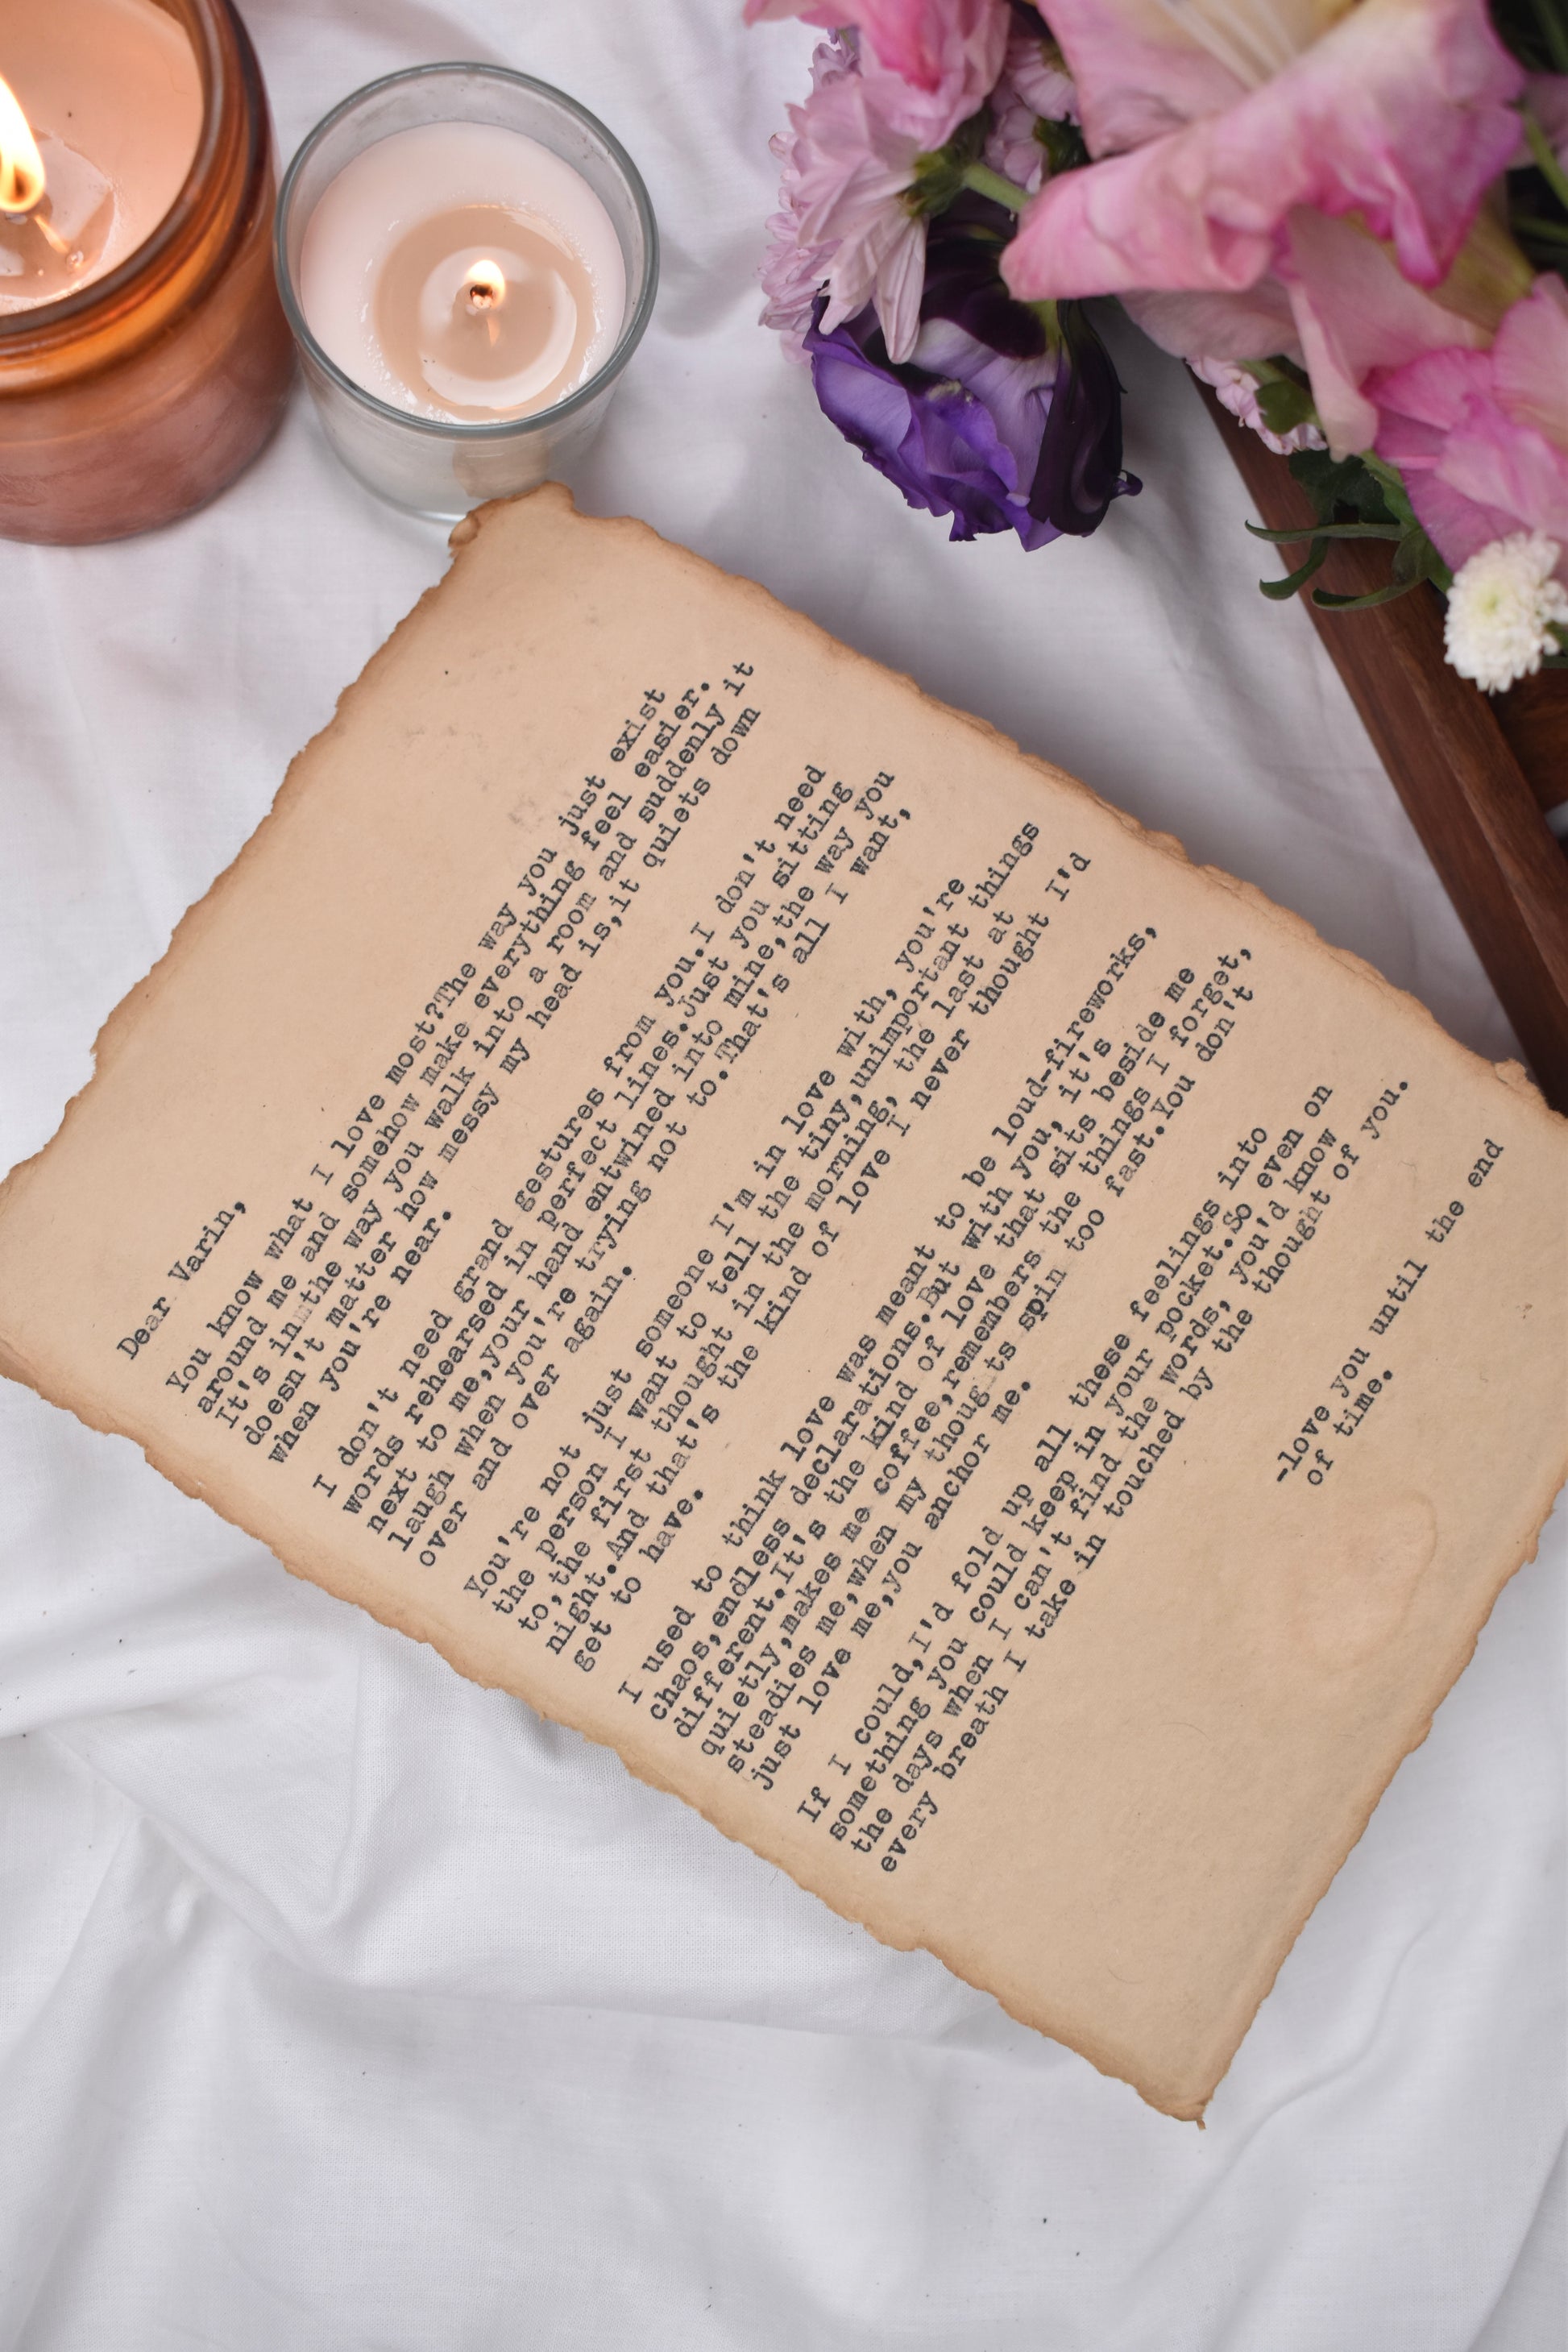 Dear Varin,
You know what I love most?The way you just exist
around me and somehow make everything feel easier.
It's in the way you walk into a room and suddenly it
doesn't matter how messy my head is,it quiets down
when you're near.
I don't need grand gestures from you.I don't need
words rehearsed in perfect lines.Just you sitting
next to me,your hand entwined into mine,the way you
laugh when you're trying not to.That's all I want,
over and over again.
You're not just someone I'm in love with, you're
the person I want to tell the tiny,unimportant things
to,the first thought in the morning, the last at
night.And that's the kind of love I never thought I'd
get to have.
I used to think love was meant to be loud-fireworks,
chaos,endless declarations.But with you, it's
different.It's the kind of love that sits beside me
quietly,makes me coffee,remembers the things I forget,
steadies me,when my thoug ts spin too fast.You don't
just love me,you anchor me.
If I could,I'd fold up all these feelings into
something you could keep in your pocket.So even on
the days when I can't find the words, you'd know
every breath I take in touched by the thought of you.
-love you until the end
of time.